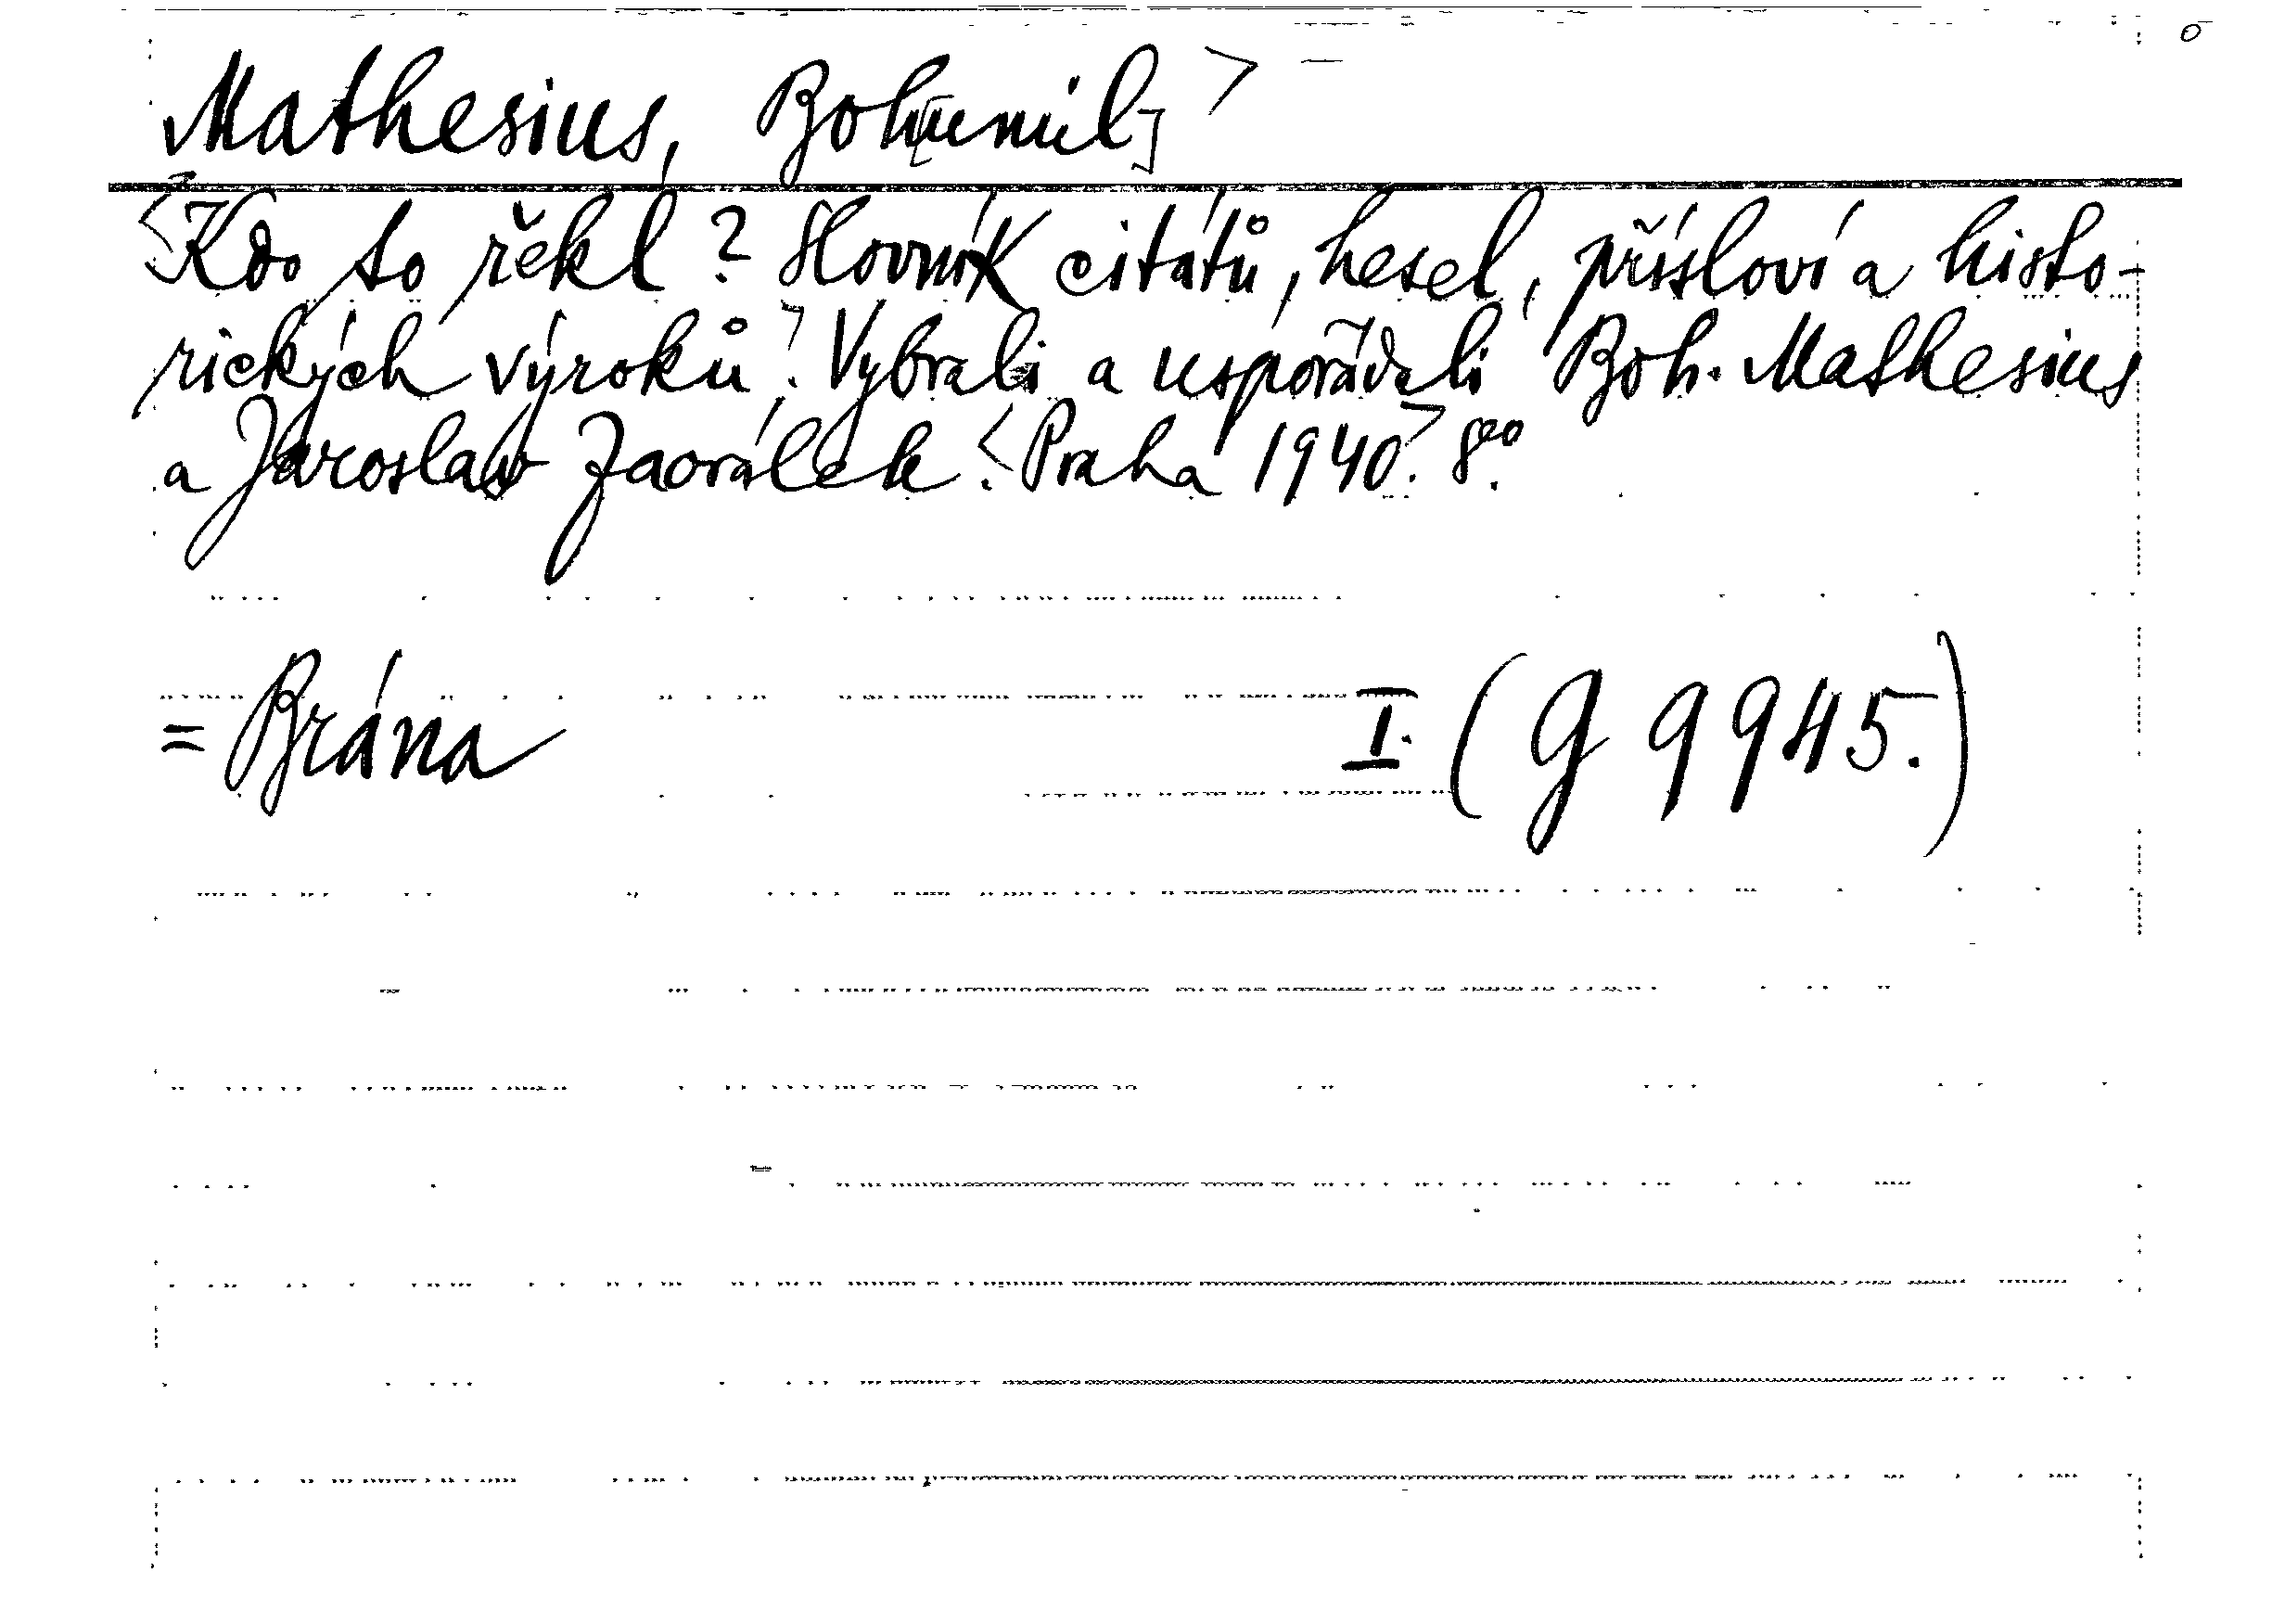 Mathesius, Boh[umil]> –
<Kdo to řekl? Slovník citátů, hesel, přísloví a histo-
rických výroků>. Vybrali a uspořádali Boh. Mathesius
a Jaroslav Zaorálek. <Praha 1940>. 8°.
= Brána I. (G 9945.)